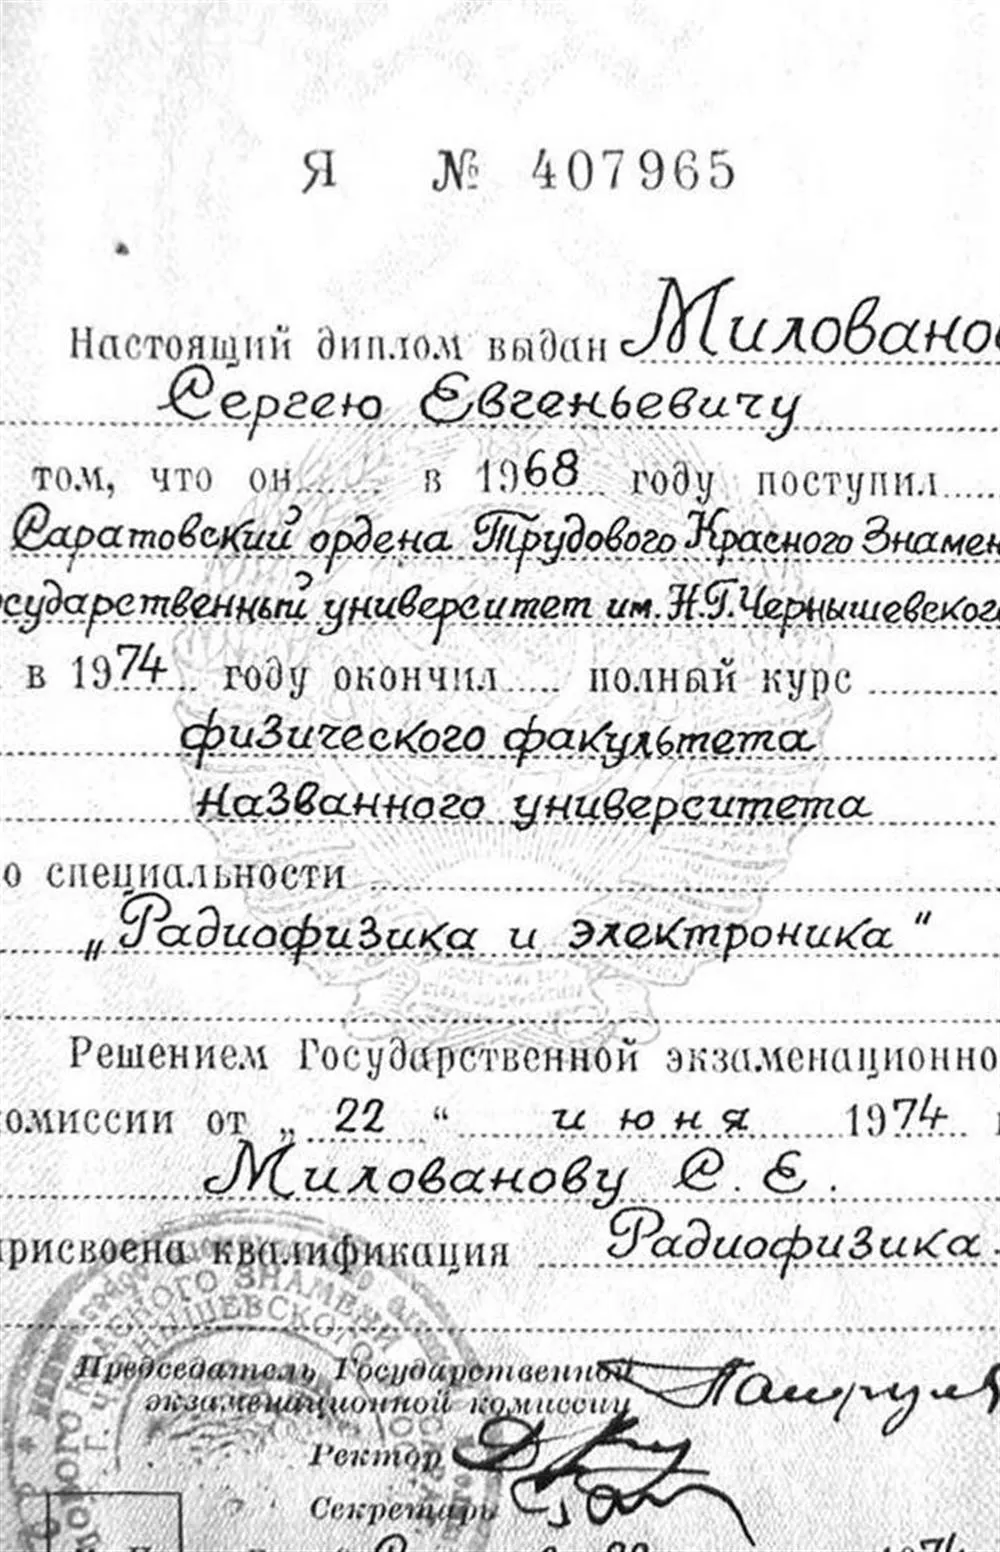 Я № 407965
Настоящий диплом выдан Миловано
Сергею Евгеньевичу
том, что он в 1968 году поступил
Саратовский ордена Трудового Красного Знамен
осударственный университет им. Н.Г.Чернышевского
в 1974 году окончил полный курс
физического факультета
названного университета
о специальности
„Радиофизика и электроника“
Решением Государственной экзаменационно
омиссии от „22“ июня 1974
Милованову С. Е.
присвоена квалификация Радиофизика.
КРАСНОГО ЗНАМЕНИ
ЧЕРНЫШЕВСКОГО
Председатель Государственной
экзаменационной комиссии
Ректор
Секретарь